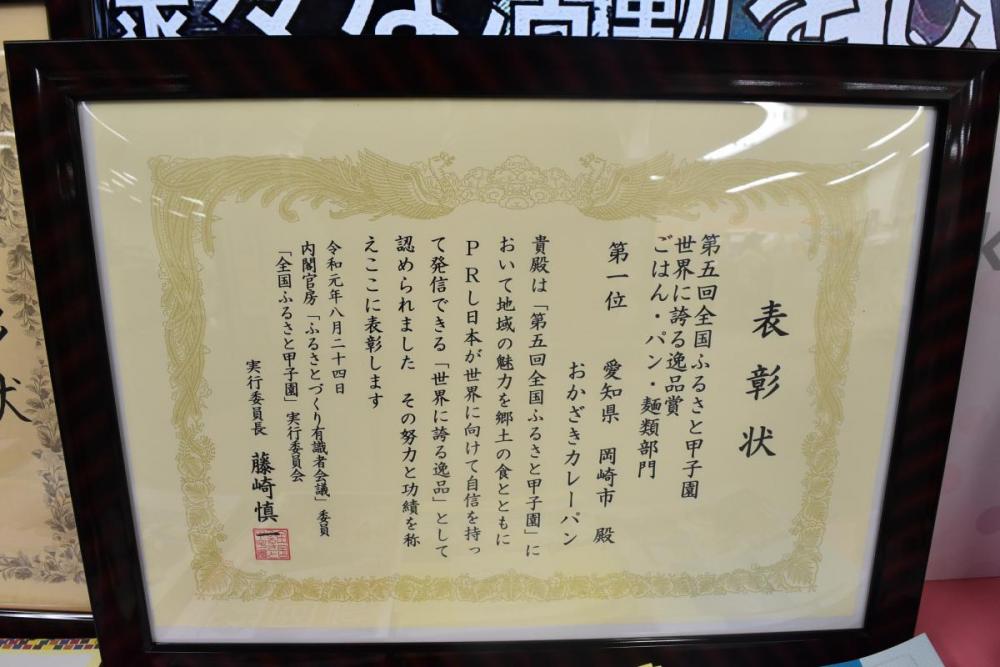 様々な活動をし
表彰状
第五回全国ふるさと甲子園
世界に誇る逸品賞
ごはん・パン・麺類部門
第一位　愛知県　岡崎市　殿
おかざきカレーパン
貴殿は「第五回全国ふるさと甲子園」に
おいて地域の魅力を郷土の食とともに
PRし日本が世界に向けて自信を持っ
て発信できる「世界に誇る逸品」として
認められました　その努力と功績を称
えここに表彰します
令和元年八月二十四日
内閣官房「ふるさとづくり有識者会議」委員
「全国ふるさと甲子園」実行委員会
実行委員長　藤崎慎一
状